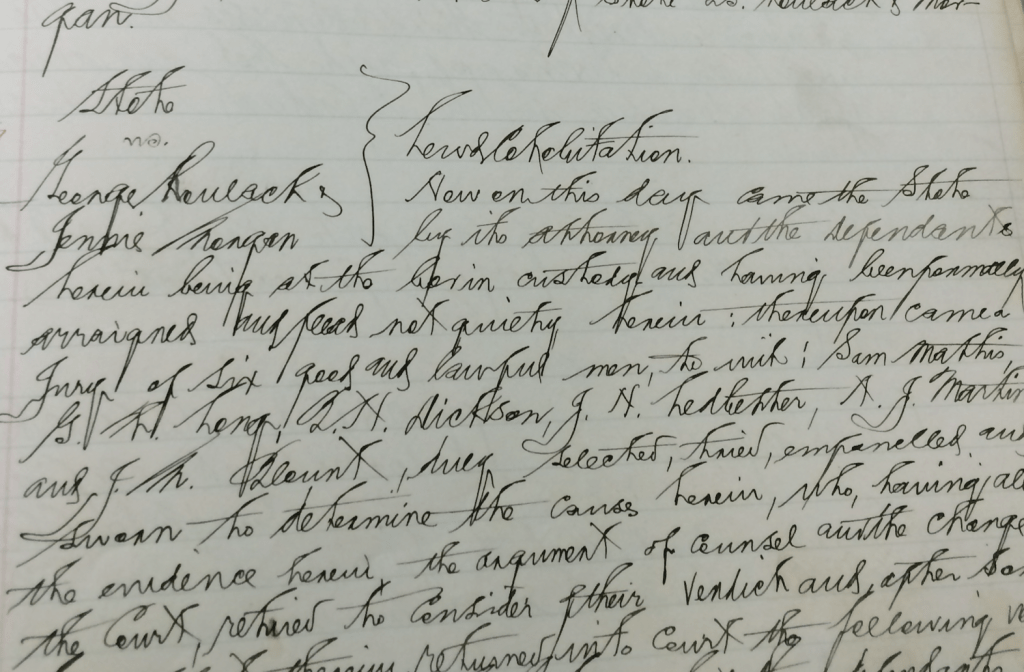 State vs. & Mor-
gan.
State
vs.
George &
Jennie Morgan
Lewd Cohabitation.
Now on this day came the State
by its attorney and the defendants
herein being at the bar in custody and having been formally
arraigned and plead not guilty herein; thereupon came a
Jury of six good and lawful men, to wit: Sam Mathis,
G. W. Long, D. N. Dickson, J. N. Ledbetter, A. J. Martin
and J. M. Blount, duly selected, tried, empanelled, and
sworn to determine the cause herein, who, having, all
the evidence herein, the argument of counsel and the charge
the Court, retired to consider of their verdict and, after
the Court therein, returned into Court the following